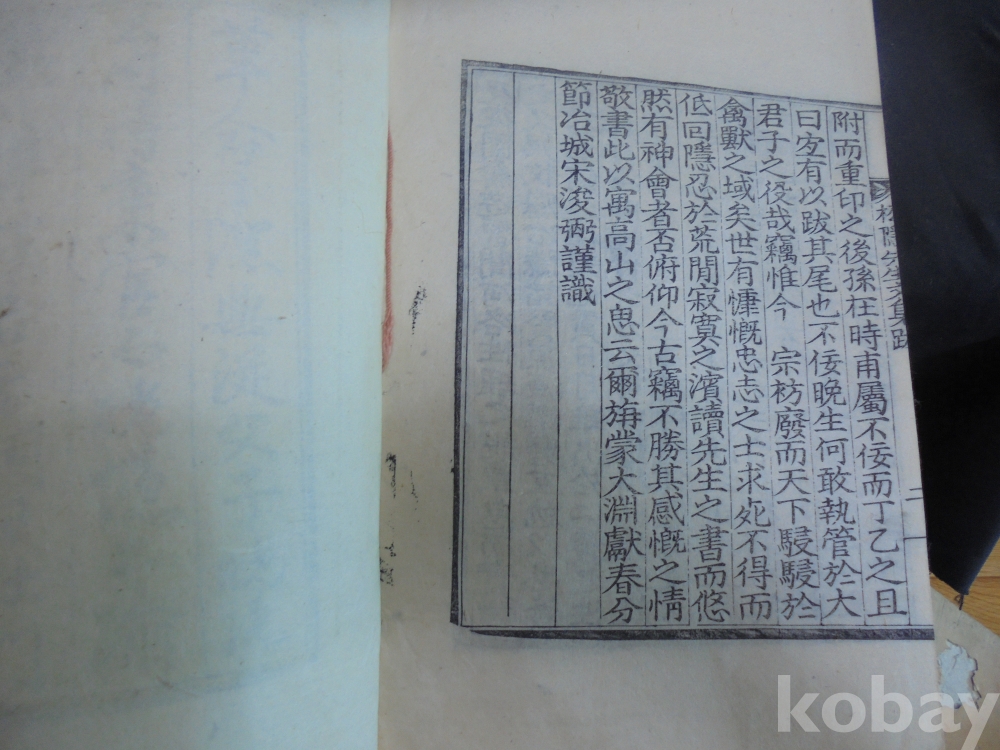 松隱先生文集跋
二
附而重印之後孫在時甫屬不佞而丁乙之且
曰宜有以跋其尾也不佞晚生何敢執管於大
君子之役哉竊惟今 宗祊廢而天下駸駸於
禽獸之域矣世有慷慨忠志之士求死不得而
低回隱忍於荒閒寂寞之濱讀先生之書而悠
然有神會者否俯仰今古竊不勝其感慨之情
敬書此以寓高山之思云爾旃蒙大淵獻春分
節冶城宋浚弼謹識
kobay